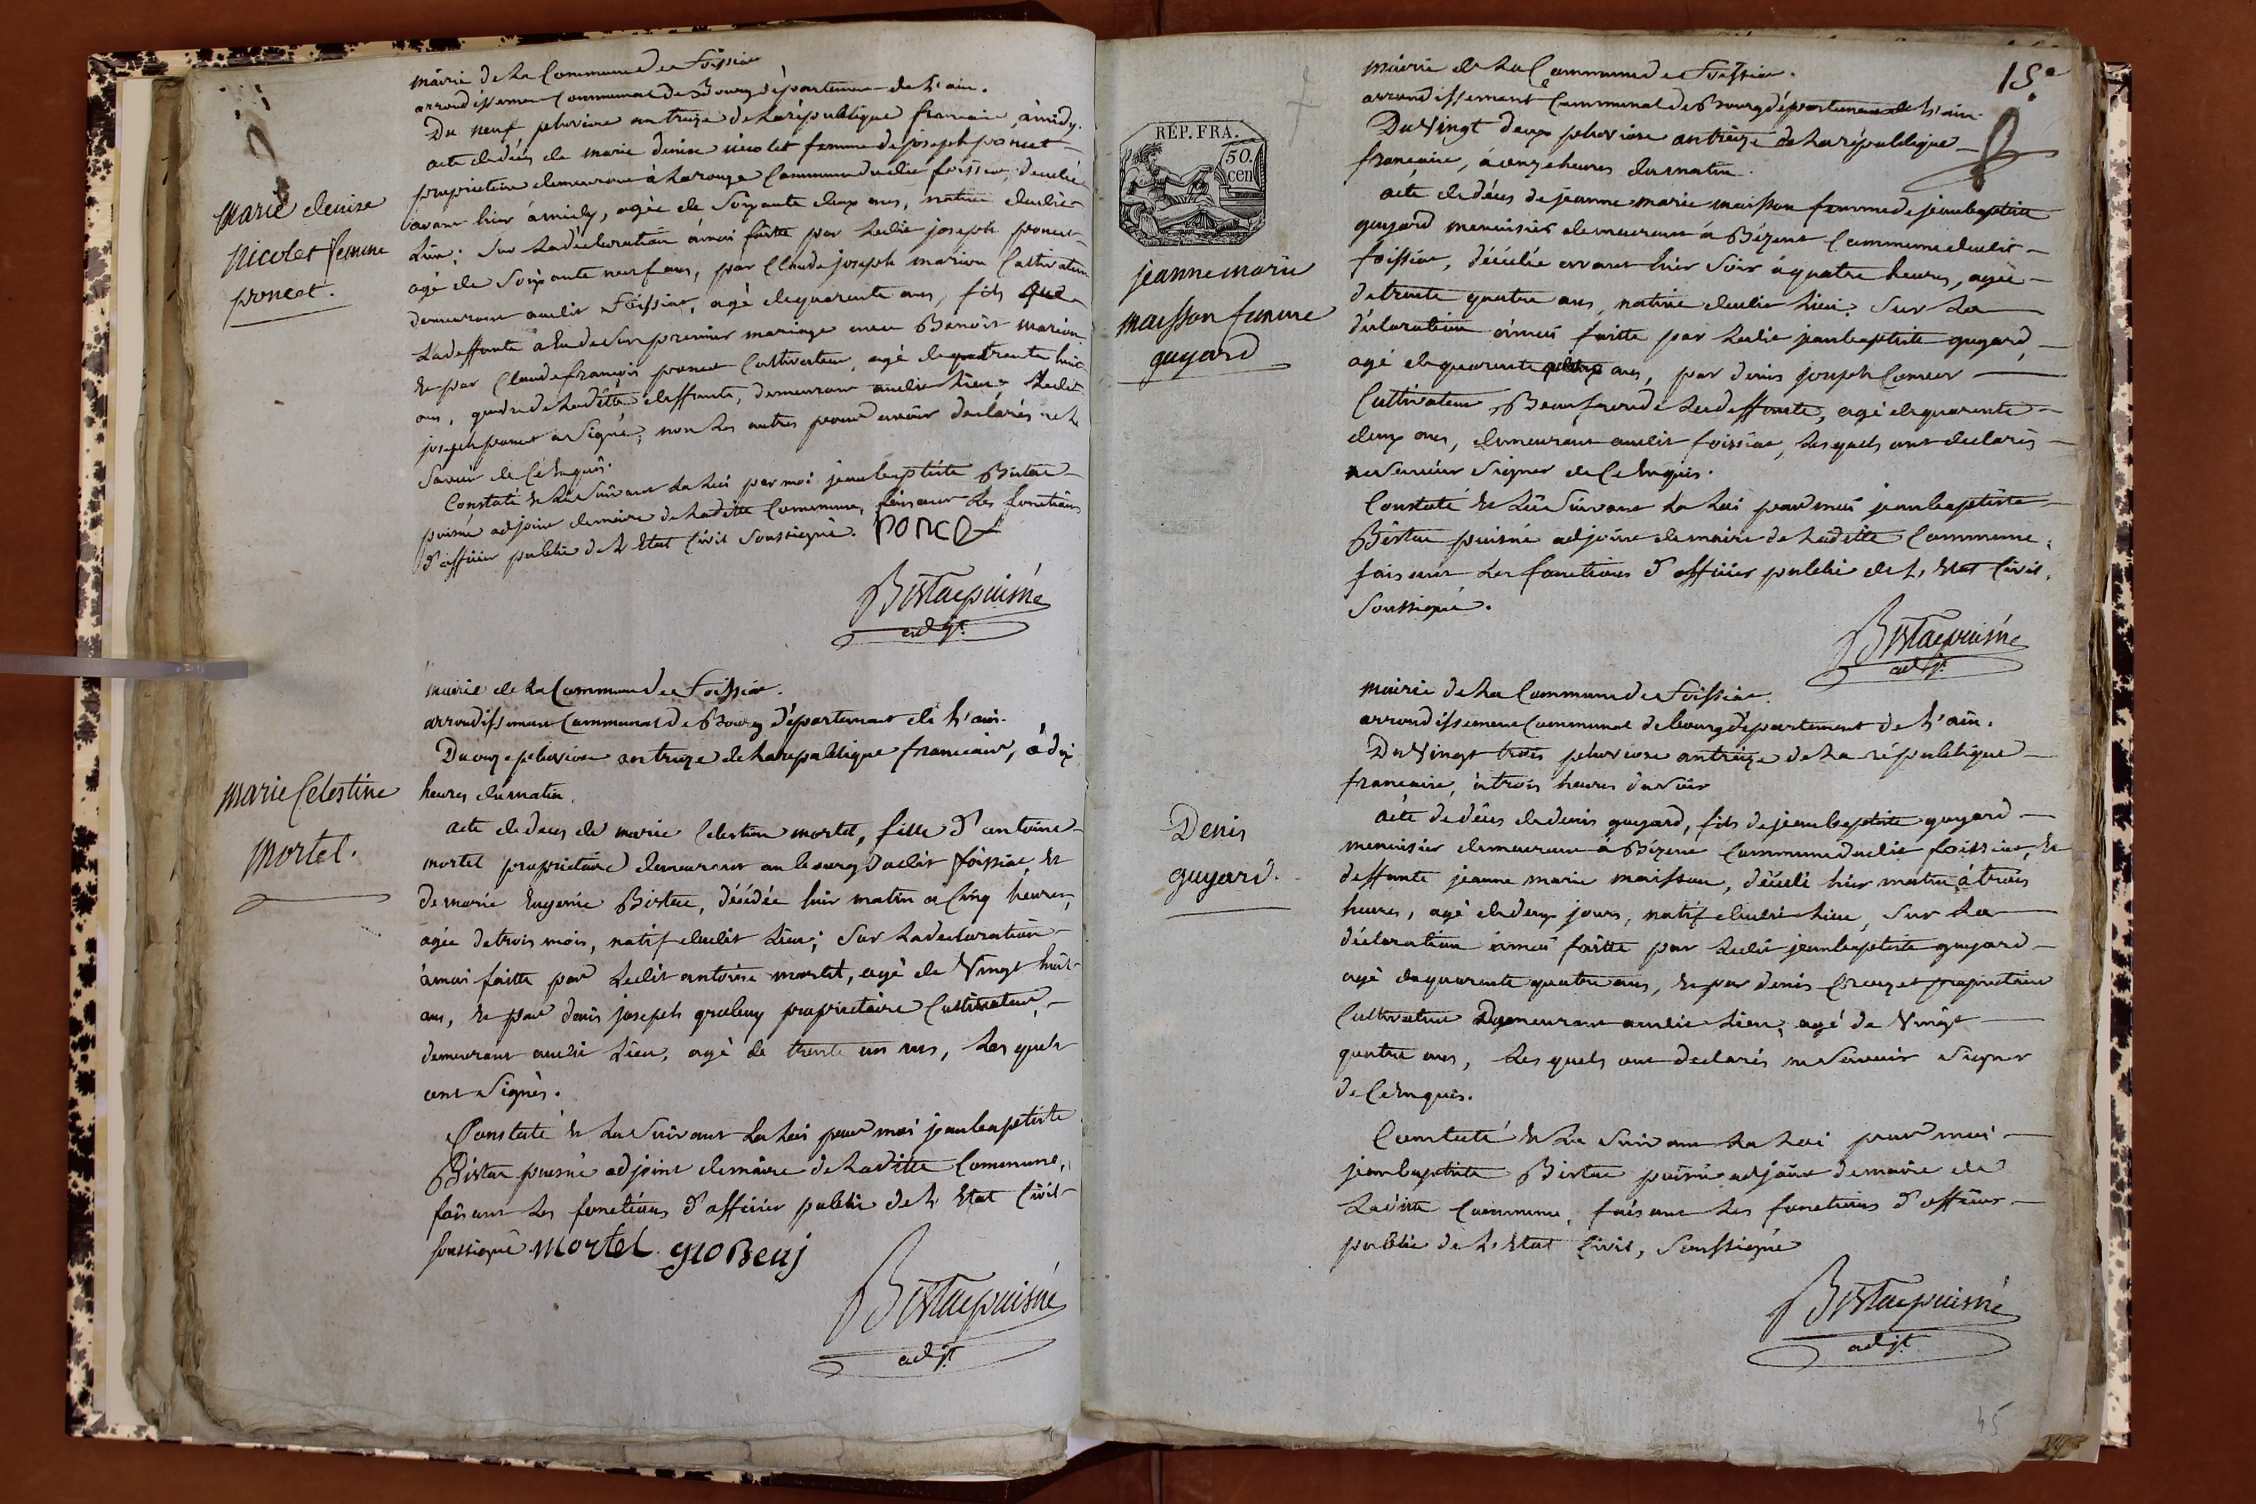 mairie de la Commune de Foissiat
arrondissement Communal de Bourg département de l'ain.
Du neuf pluviose an treize de la république francaise, à midy.
acte de décès de marie denise nicolet femme de joseph poncet
propriétaire demeurant à la rouge Commune dudit foissiat, décédée
avant hier à midy, agée de soixante deux ans, native dudit
Lieu; sur la déclaration à moi faitte par ledit joseph poncet
agé de soixante neuf ans, par Claude joseph marion Cultivateur
demeurant audit Foissiat, agé de quarente ans, fils que
la deffunte a eu de son premier mariage avec Benoit marion
et par Claude françois poncet Cultivateur, agé de trente huit
ans, gendre de laditte deffunte, demeurant audit Lieu. Ledit
joseph poncet a signé, non les autres pour avoir declarés ne le
savoir de ce enquis.
Constaté et lu suivant la Loi par moi jean baptiste Birtac
puisné adjoint de maire de laditte Commune, faisant les fonctions
d'officier public de l'Etat Civil soussigné. poncet
Birtac puisné
adjt
marie denise
nicolet femme
poncet.
mairie de la Commune de Foissiat.
arrondissement Communal de Bourg département de l'ain.
Du onze pluviose an treize de la republique francaise, à dix
heures du matin.
acte de deces de marie Celestine mortel, fille d'antoine
mortel propriétaire demeurant au bourg dudit foissiat, et
de marie Eugenie Birtac, décédée hier matin a Cinq heures,
agée de trois mois, natif dudit Lieu; sur la declaration
à moi faitte par ledit antoine mortel, agé de Vingt huit
ans, et par denis joseph grobeuy propriétaire Cultivateur,
demeurant audit Lieu, agé de trente un ans, Les quels
ont signés.
Constaté et lu suivant la Loi par moi jean baptiste
Birtac puisné adjoint de maire de laditte Commune,
faisant les fonctions d'officier public de l'Etat Civil
soussigné mortel groBeuj
Birtac puisné
adjt
marie Celestine
mortel.
15e
REP. FRA.
50.
cen
mairie de la Commune de Foissiat.
arrondissement Communal de Bourg département de l'ain.
Du Vingt deux pluviose an treize de la république
francaise, à onze heures du matin.
acte de décès de jeanne marie maisson femme de jean baptiste
guyard menuisier demeurant à Bézent Commune dudit
foissiat, décédée avant hier soir à quatre heures, agée
de trente quatre ans, native dudit Lieu. sur la
déclaration à moi faitte par ledit jean baptiste guyard,
agé de quarente ans, par denis joseph
Cultivateur, Beau frere de la deffunte, agé de quarente
deux ans, demeurant audit foissiat, les quels ont declarés
ne savoir signer de ce Enquis.
Constaté et lu suivant la Loi par moi jean baptiste
Birtac puisné adjoint de maire de laditte Commune,
faisant les fonctions d'officier public de l'Etat Civil,
soussigné.
Birtac puisné
adjt
jeanne marie
maisson femme
guyard
mairie de la Commune de Foissiat.
arrondissement Communal de bourg département de l'ain.
Du Vingt trois pluviose an treize de la république
francaise, à trois heures du soir
acte de décès de denis guyard, fils de jean baptiste guyard
menuisier demeurant à Bézent Commune dudit foissiat, et
deffunte jeanne marie maisson, décédé hier matin à trois
heures, agé de deux jours, natif dudit Lieu, sur la
déclaration à moi faitte par ledit jean baptiste guyard
agé de quarente quatre ans, et par denis Creuzet propriétaire
Cultivateur Demeurant audit Lieu, agé de Vingt
quatre ans, Les quels ont declarés ne savoir signer
de ce enquis.
Constaté et lu suivant la Loi par moi
jean baptiste Birtac puisné adjoint de maire de
laditte Commune, faisant les fonctions d'officier
public de l'Etat Civil, soussigné
Birtac puisné
adjt
Denis
guyard.
45